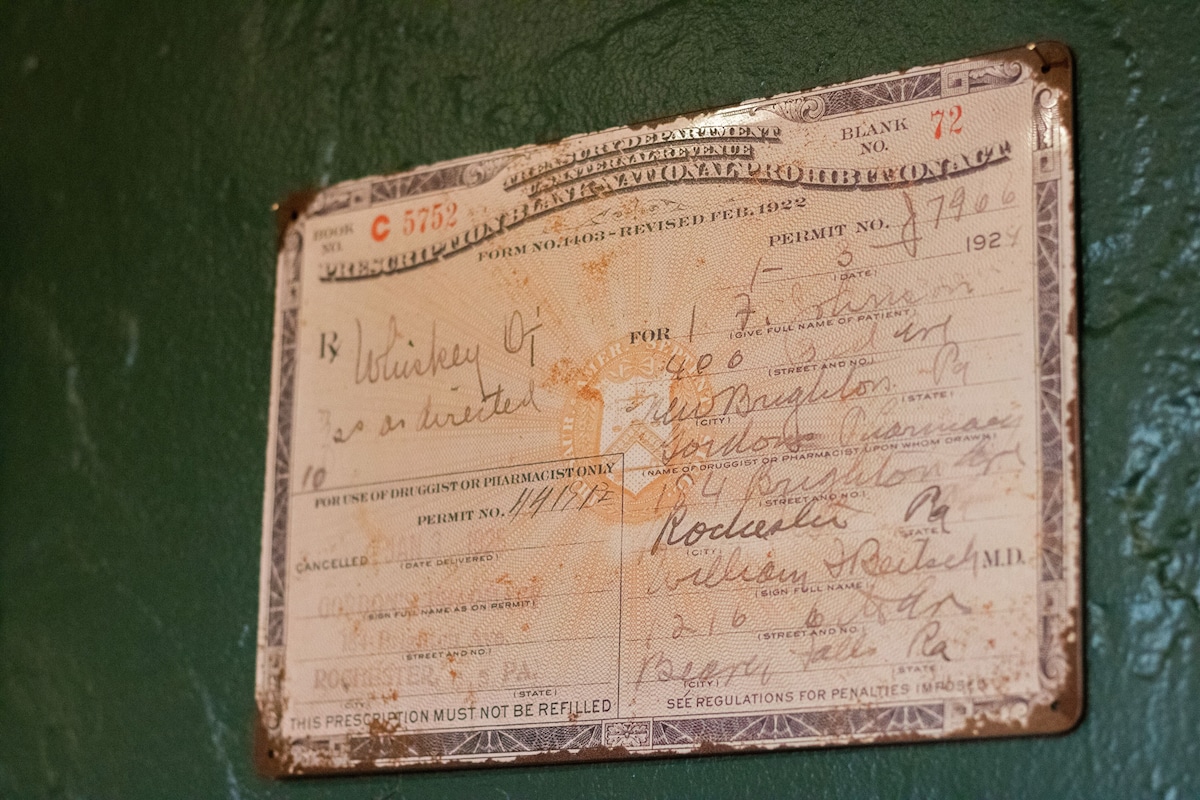 TREASURY DEPARTMENT
U.S. INTERNAL REVENUE
PRESCRIPTION BLANK-NATIONAL PROHIBITION ACT
FORM NO. 1403-REVISED FEB. 1922
BOOK NO. C 5752
BLANK NO. 72
PERMIT NO.
1- 3 1924
(DATE)
Rx Whiskey
as directed
10
FOR F. Johnson
(GIVE FULL NAME OF PATIENT)
400
(STREET AND NO.)
New Brighton Pa
(CITY) (STATE)
Gordons Pharmacy
(NAME OF DRUGGIST OR PHARMACIST UPON WHOM DRAWN)
184 Brighton
(STREET AND NO.)
Rochester Pa
(CITY) (STATE)
William J Beitsch M.D.
(SIGN FULL NAME)
1216
(STREET AND NO.)
Beaver Falls Pa
(CITY) (STATE)
SEE REGULATIONS FOR PENALTIES IMPOSED
FOR USE OF DRUGGIST OR PHARMACIST ONLY
PERMIT NO.
CANCELLED
(DATE DELIVERED)
GORDON'S PHARMACY
(SIGN FULL NAME AS ON PERMIT)
184 Brighton Ave.
(STREET AND NO.)
ROCHESTER, PA.
(STATE)
THIS PRESCRIPTION MUST NOT BE REFILLED